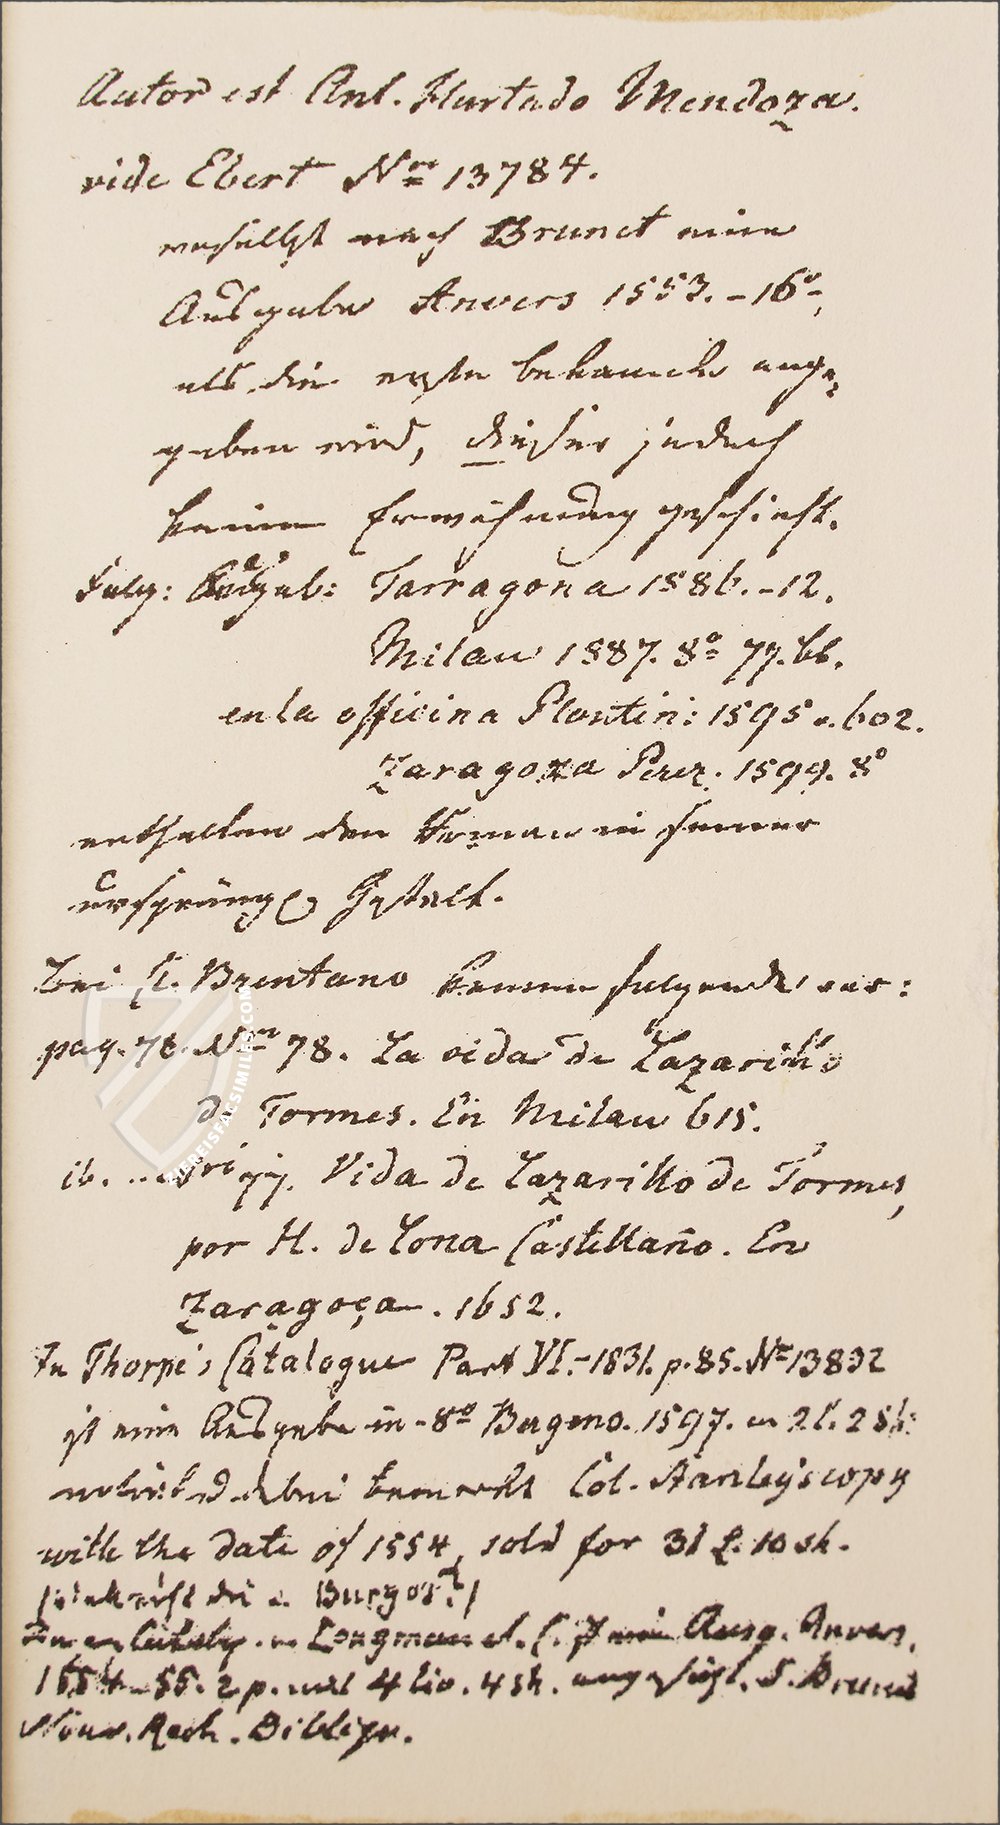 Autor est Ant. Hurtado Mendoza.
vide Ebert Nro 13784.
woselbst nach Brunet eine
Ausgabe Anvers 1553. - 16o -,
als die erste bekannte ange-
geben wird, dieser jedoch
keine Erwähnung geschieht.
Folg: Ausgab: Tarragona 1586. - 12.
Milan 1587. 8o 77. bb.
en la officina Plantin: 1595 u. 602.
Zaragoza Perez. 1599. 8o
enthalten den Roman in seiner
ursprüngl Gestalt.
Bei Cl. Brentano kommen folgende vor:
pag. 78. Nro 78. La vida de Lazarillo
de Tormes. En Milan 615.
ib. 77. Vida de Lazarillo de Tormes,
por H. de Lona Castellaño. En
Zaragoça. 1652.
In Thorpe's Catalogue Part VI. - 1831. p. 85. No 13832
ist eine Ausgabe in - 8o Bergamo. 1597. 2 l. 2 sh:
notirt u dabei bemerkt Col. Stanley's copy
with the date of 1554, sold for 31 £. 10 sh.
Burgos?)
Longman Ausg. Anvers.
1554 - 55. 2 p. mit 4 liv. 4 sh. angesetzt. S. Brunet
Nouv. Rech. Bibliogr.
HEREISFACSIMILES.COM